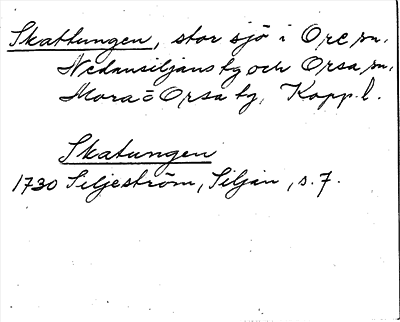 Skattungen, stor sjö i Ore sn,
Nedansiljans tg och Orsa sn,
Mora = Orsa tg, Kopp. l.
Skatungen
1730 Siljeström, Siljan, s. 7.